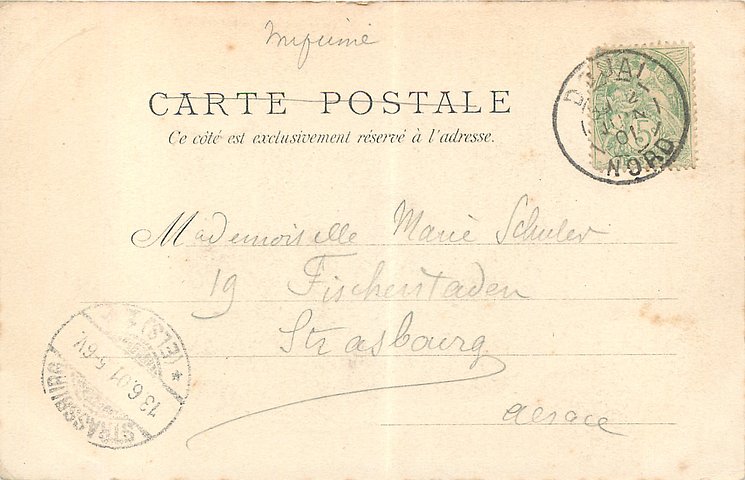 Imprimé
CARTE POSTALE
Ce côté est exclusivement réservé à l'adresse.
DOUAI
NORD
5
Mademoiselle Marie Schuler
19 Fischerstaden
Strasbourg
Alsace
STRASSBURG
13.6.01.5-6V.
(ELS)